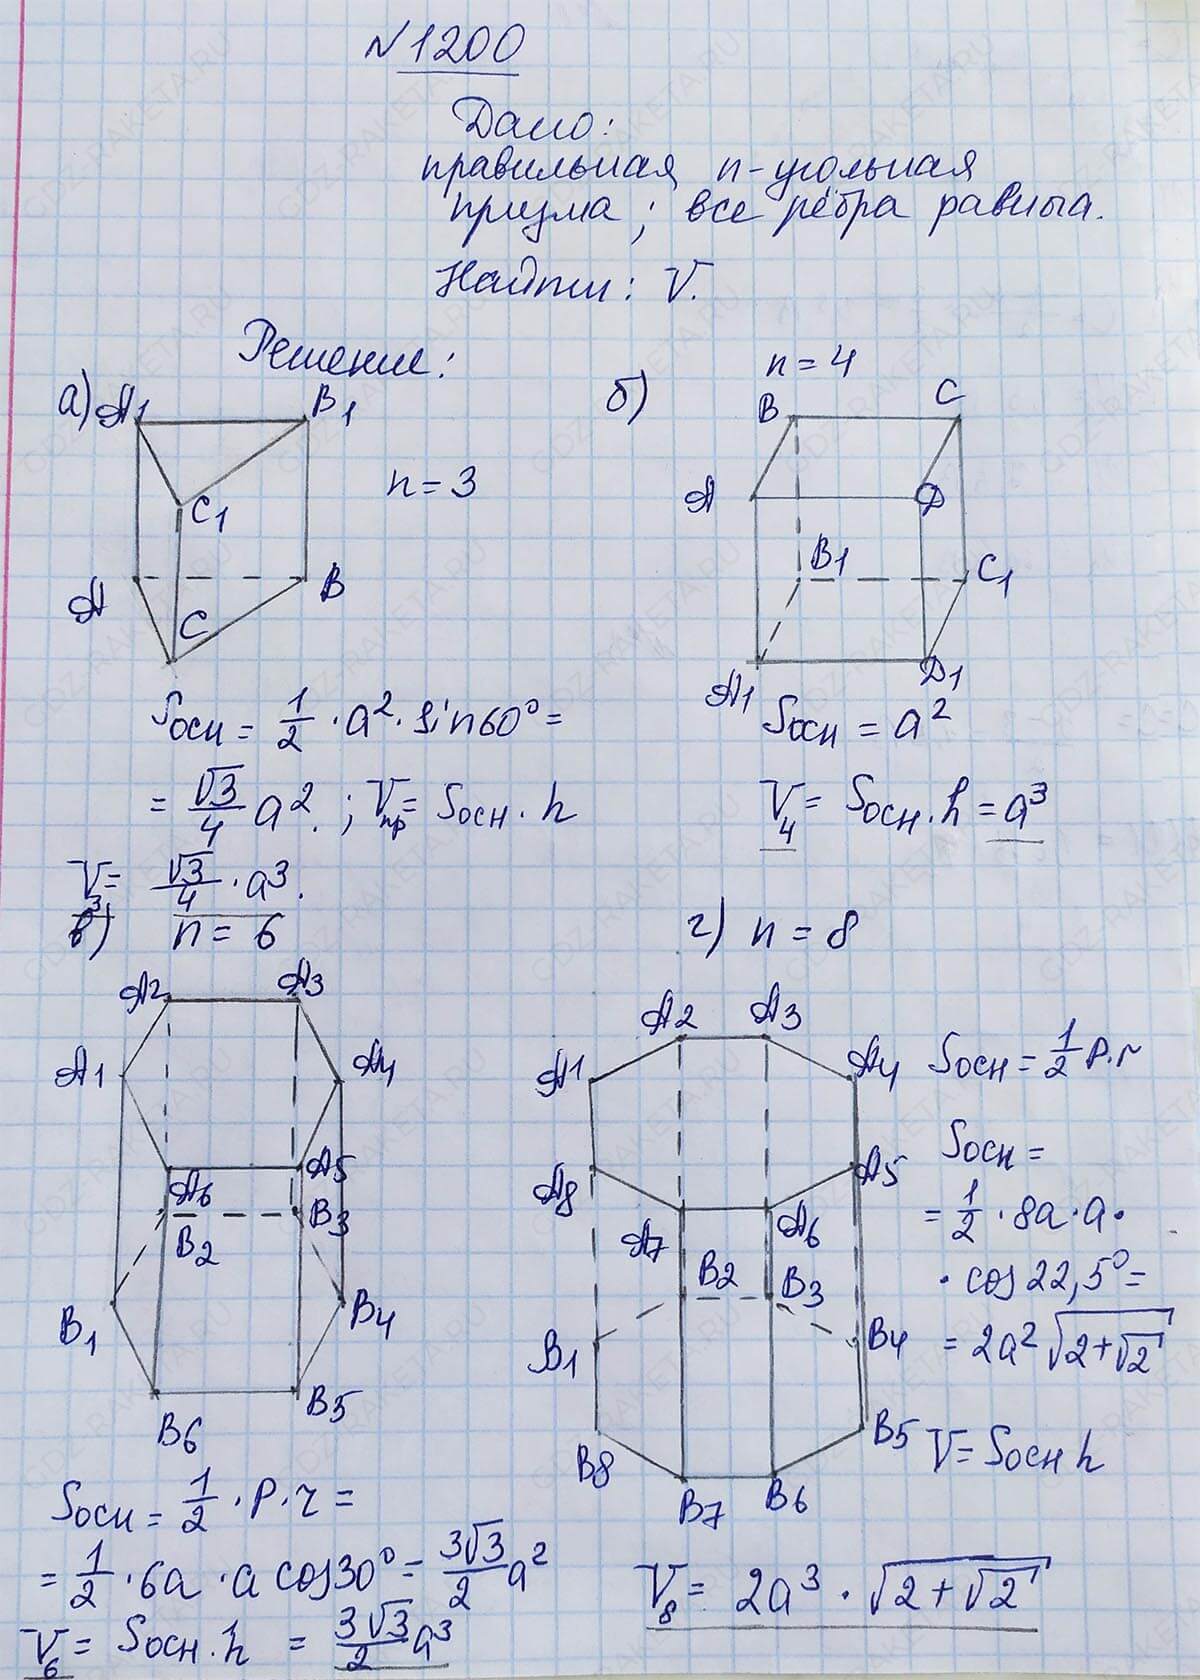 №1200
Дано:
правильная n-угольная
призма; все рёбра равны a.
Найти: V.
Решение:
а) A1 B1
C1
n=3
A B
C
Sосн = 1/2 · a² · sin60° =
= √3/4 a². ; Vпр = Sосн · h
V3 = √3/4 · a³.
б) n=4
B C
A D
B1 C1
A1 D1
Sосн = a²
V4 = Sосн · h = a³
в) n = 6
A2 A3
A1 A4
A6 A5
B2 B3
B1 B4
B6 B5
Sосн = 1/2 · P · r =
= 1/2 · 6a · a cos30° = 3√3/2 a²
V6 = Sосн · h = 3√3/2 a³
г) n = 8
A2 A3
A1 A4
A8 A5
A7 A6
B2 B3
B1 B4
B8 B5
B7 B6
Sосн = 1/2 P · r
Sосн =
= 1/2 · 8a · a ·
· cos 22,5° =
= 2a² √(2+√2)
V = Sосн h
V8 = 2a³ · √(2+√2)
GDZ-RAKETA.RU